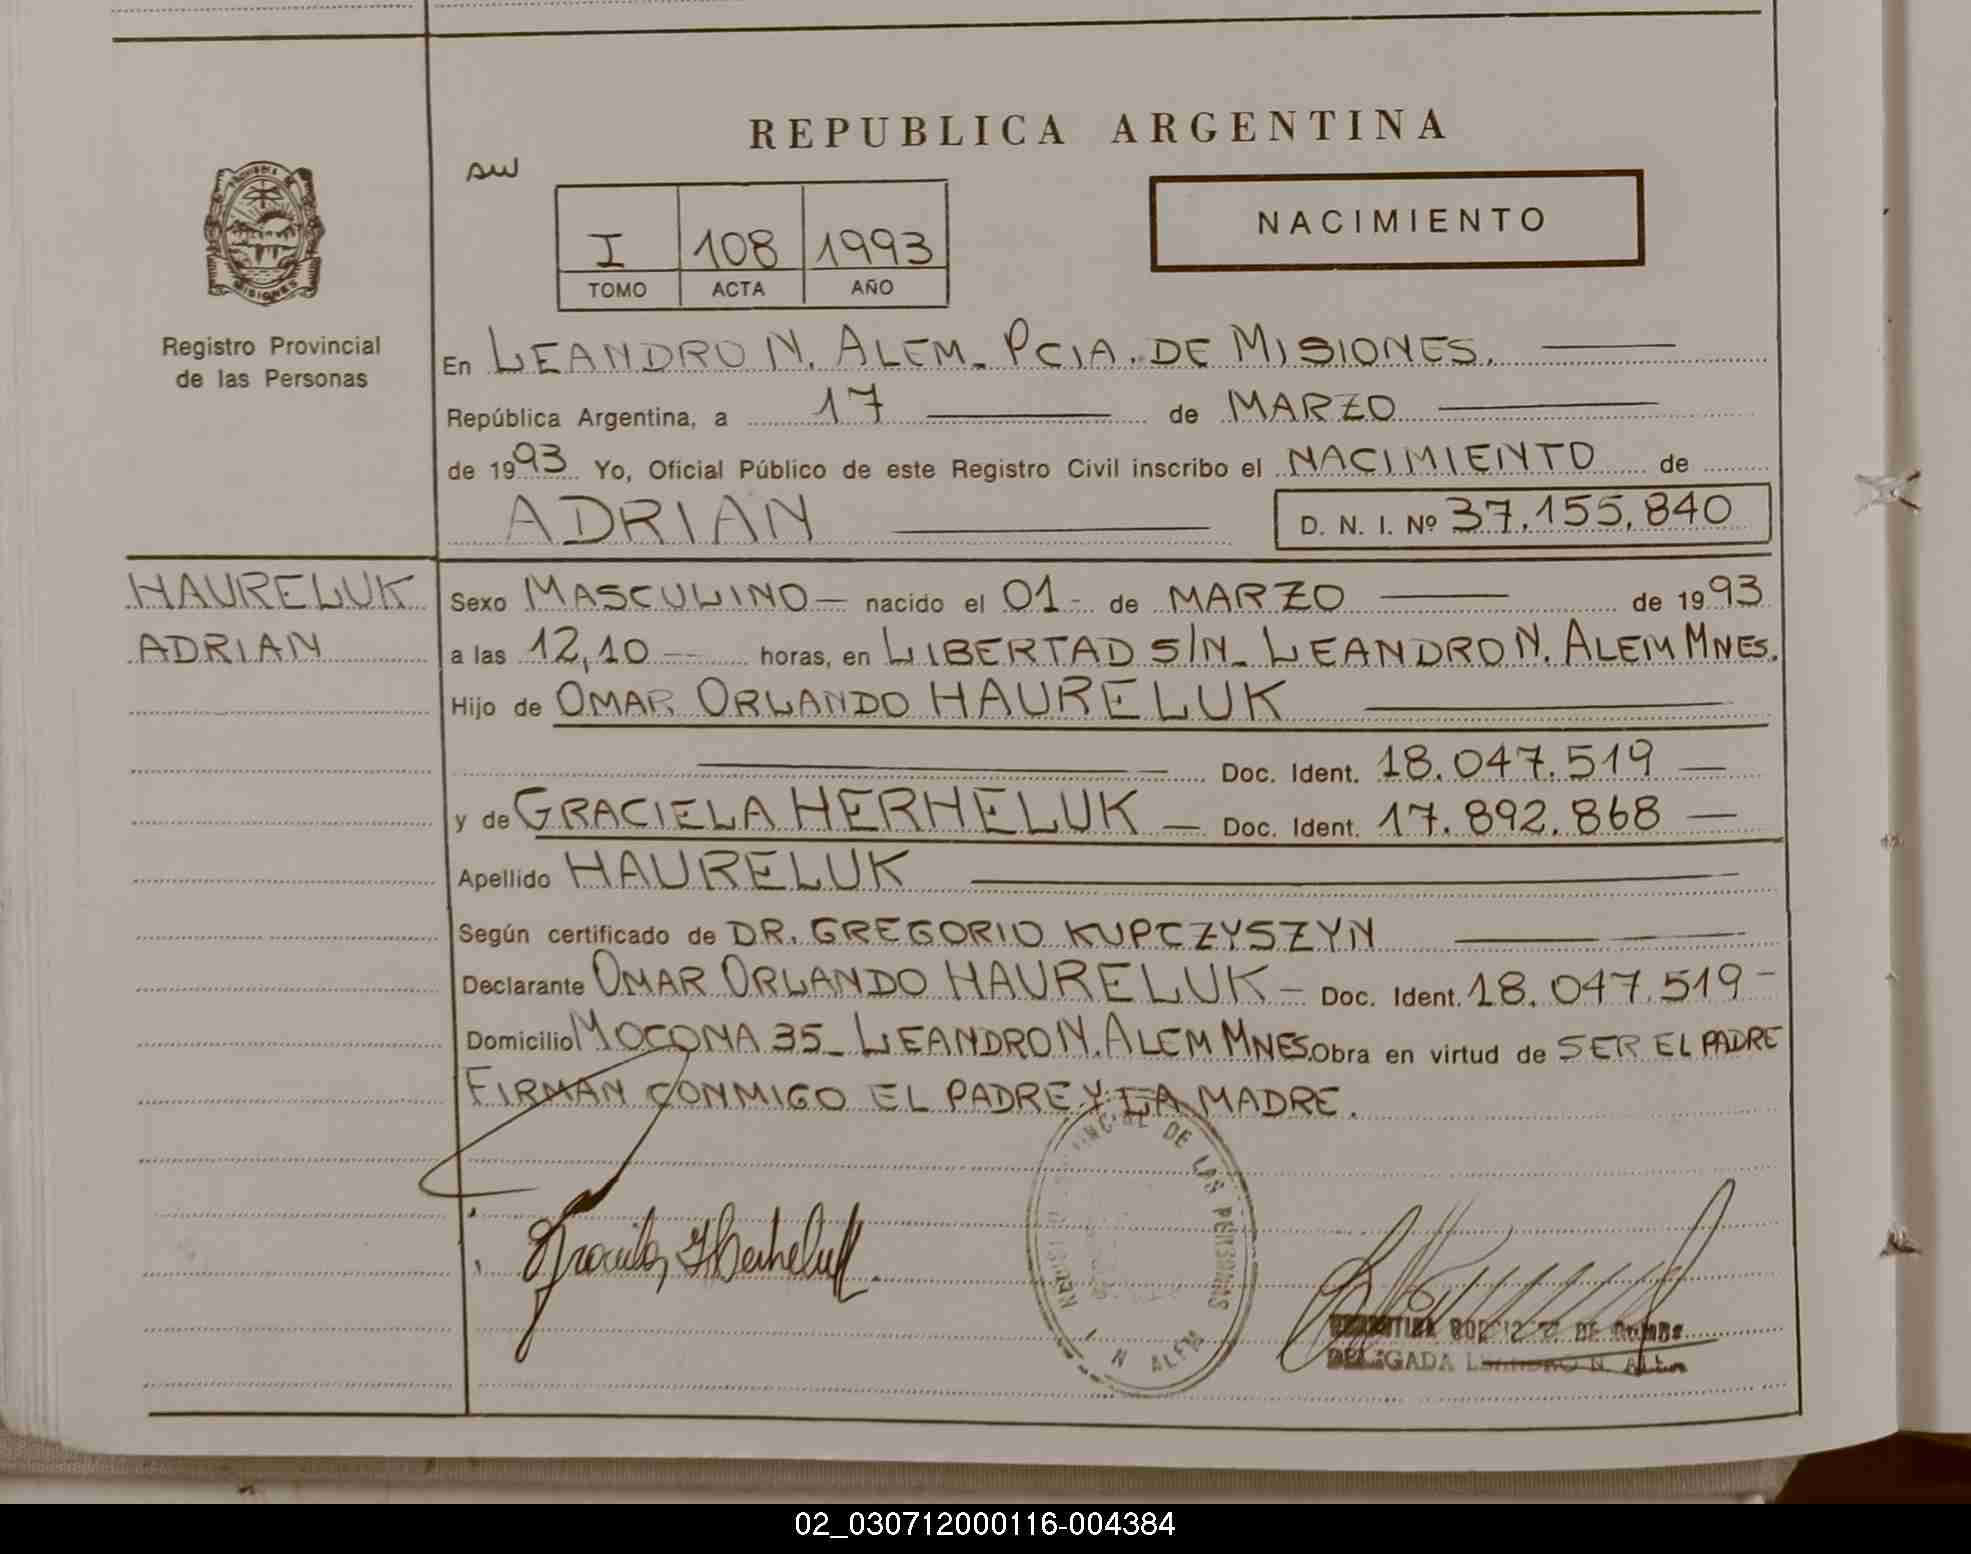 REPUBLICA ARGENTINA
I 108 1993
TOMO ACTA AÑO
NACIMIENTO
Registro Provincial
de las Personas
En LEANDRO N. ALEM - PCIA. DE MISIONES.
República Argentina, a 17 de MARZO
de 1993 Yo, Oficial Público de este Registro Civil inscribo el NACIMIENTO de
ADRIAN D. N. I. Nº 37.155.840
HAURELUK
ADRIAN
Sexo MASCULINO — nacido el 01 - de MARZO de 1993
a las 12,10 horas, en LIBERTAD S/N - LEANDRO N. ALEM MNES.
Hijo de OMAR ORLANDO HAURELUK
Doc. Ident. 18.047.519 —
y de GRACIELA HERHELUK — Doc. Ident. 17.892.868 —
Apellido HAURELUK
Según certificado de DR. GREGORIO KUPCZYSZYN
Declarante OMAR ORLANDO HAURELUK — Doc. Ident. 18.047.519 -
Domicilio MOCONA 35 - LEANDRO N. ALEM MNES. Obra en virtud de SER EL PADRE
FIRMAN CONMIGO EL PADRE Y LA MADRE.
DE LAS PERSONAS
N ALEM
Graciela Herheluk
DELEGADA LEANDRO N. ALEM
02_030712000116-004384